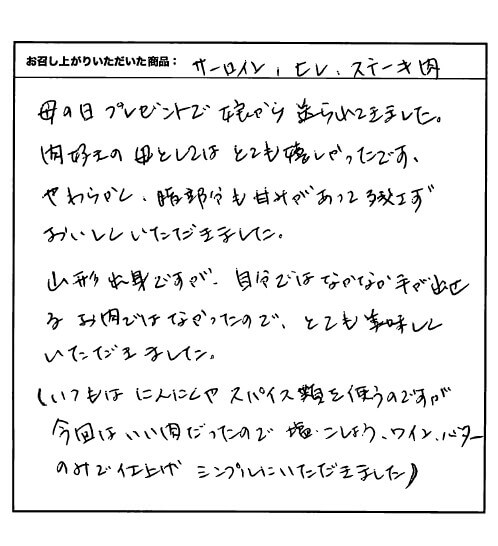 お召し上がりいただいた商品： サーロイン、ヒレ、ステーキ肉
母の日プレゼントで娘から送られてきました。
肉好きの母としてはとても嬉しかったです、
やわらかく、脂部分も甘みがあって残さず
おいしくいただきました。
山形出身ですが、自分ではなかなか手が出せ
るお肉ではなかったので、とても美味しく
いただきました。
(いつもはにんにくやスパイス類を使うのですが
今回はいい肉だったので塩・こしょう、ワイン、バター
のみで仕上げ シンプルにいただきました)